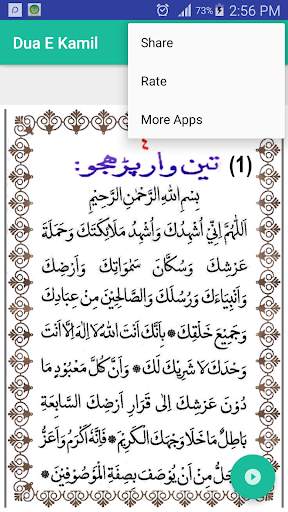 73% 2:56 PM
Dua E Kamil
Share
Rate
More Apps
(1) تين وار پڙهجو:
بِسْمِ اللهِ الرَّحْمٰنِ الرَّحِيْمِ
اَللّٰهُمَّ اِنِّيْ اُشْهِدُكَ وَاُشْهِدُ مَلَائِكَتَكَ وَحَمَلَةَ
عَرْشِكَ وَسُكَّانَ سَمٰوَاتِكَ وَاَرْضِكَ
وَاَنْبِيَاءَكَ وَرُسُلَكَ وَالصَّالِحِيْنَ مِنْ عِبَادِكَ
وَجَمِيْعَ خَلْقِكَ * بِاَنَّكَ اَنْتَ اللهُ لَا اِلٰهَ اِلَّا اَنْتَ
وَحْدَكَ لَا شَرِيْكَ لَكَ * وَاَنَّ كُلَّ مَعْبُوْدٍ مَا
دُوْنَ عَرْشِكَ اِلٰى قَرَارِ اَرْضِكَ السَّابِعَةِ
بَاطِلٌ مَا خَلَا وَجْهَكَ الْكَرِيْمَ * فَاِنَّهٗ اَكْرَمُ وَاَعَزُّ
مِنْ اَنْ يُوْصَفَ بِصِفَةِ الْمَوْصُوْفِيْنَ *